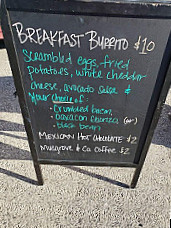 BREAKFAST BURRITO $10
Scrambled eggs, fried
potatoes, white cheddar
cheese, avocado salsa &
your choice of:
• crumbled bacon
• oaxacan chorizo (or)
• black bean
MEXICAN HOT CHOCOLATE $2
Musgrove & Co Coffee $2